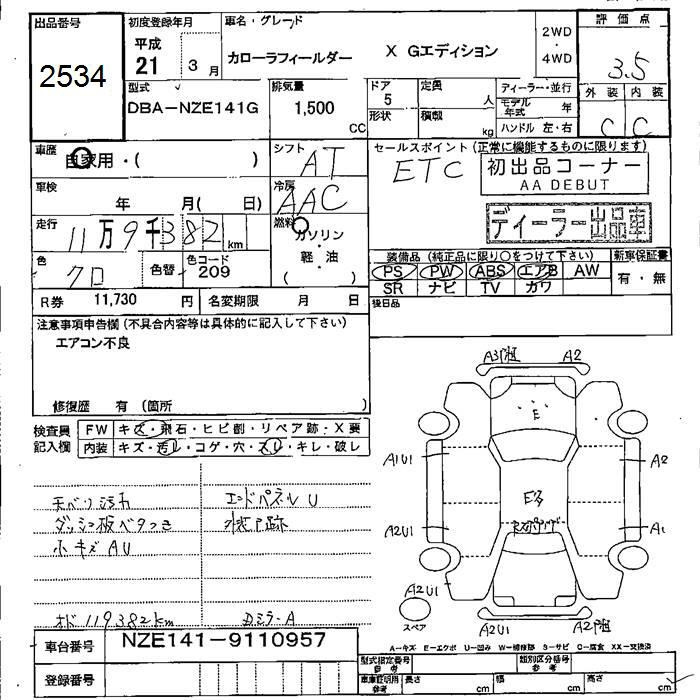 出品番号
2534
初度登録年月
平成
21 3 月
車名・グレード
カローラフィールダー X Gエディション
2WD
・
4WD
評価点
3.5
外装 内装
C C
型式
DBA-NZE141G
排気量
1,500 CC
ドア
5
形状
定員
人
積載
kg
ディーラー・並行
モデル年式 年
ハンドル 左・右
車歴
自家用・( )
シフト
AT
車検
年 月( 日)
冷房
AAC
走行
11万9千382 km
燃料
ガソリン
・
軽・油
( )
色
クロ
色替
色コード
209
R券 11,730 円
名変期限 月 日
セールスポイント (正常に機能するものに限ります)
ETC
初出品コーナー
AA DEBUT
ディーラー出品車
装備品 (純正品に限り○をつけて下さい)
新車保証書
PS PW ABS エアB AW
有・無
SR ナビ TV カワ
後日品
注意事項申告欄 (不具合内容等は具体的に記入して下さい)
エアコン不良
修復歴 有 (箇所 )
検査員
記入欄
FW キズ・飛石・ヒビ割・リペア跡・X要
内装 キズ・汚レ・コゲ・穴・スレ・キレ・破レ
天ベリ汚れ
ダッシュ板ベタつき
小キズAU
エンドパネルU
オド 119382km
Dミラ-A
車台番号 NZE141-9110957
登録番号
A3 A2
E
A1U1
A2
A2U1
A1
A2U1
スペア
A2U1
A2
A2U1
A-キズ E-エクボ U-凹み W-補修跡 S-サビ C-腐食 XX-交換済
型式指定番号
参考
類別区分番号
参考
車庫証明用
参考
長さ cm
幅 cm
高さ cm